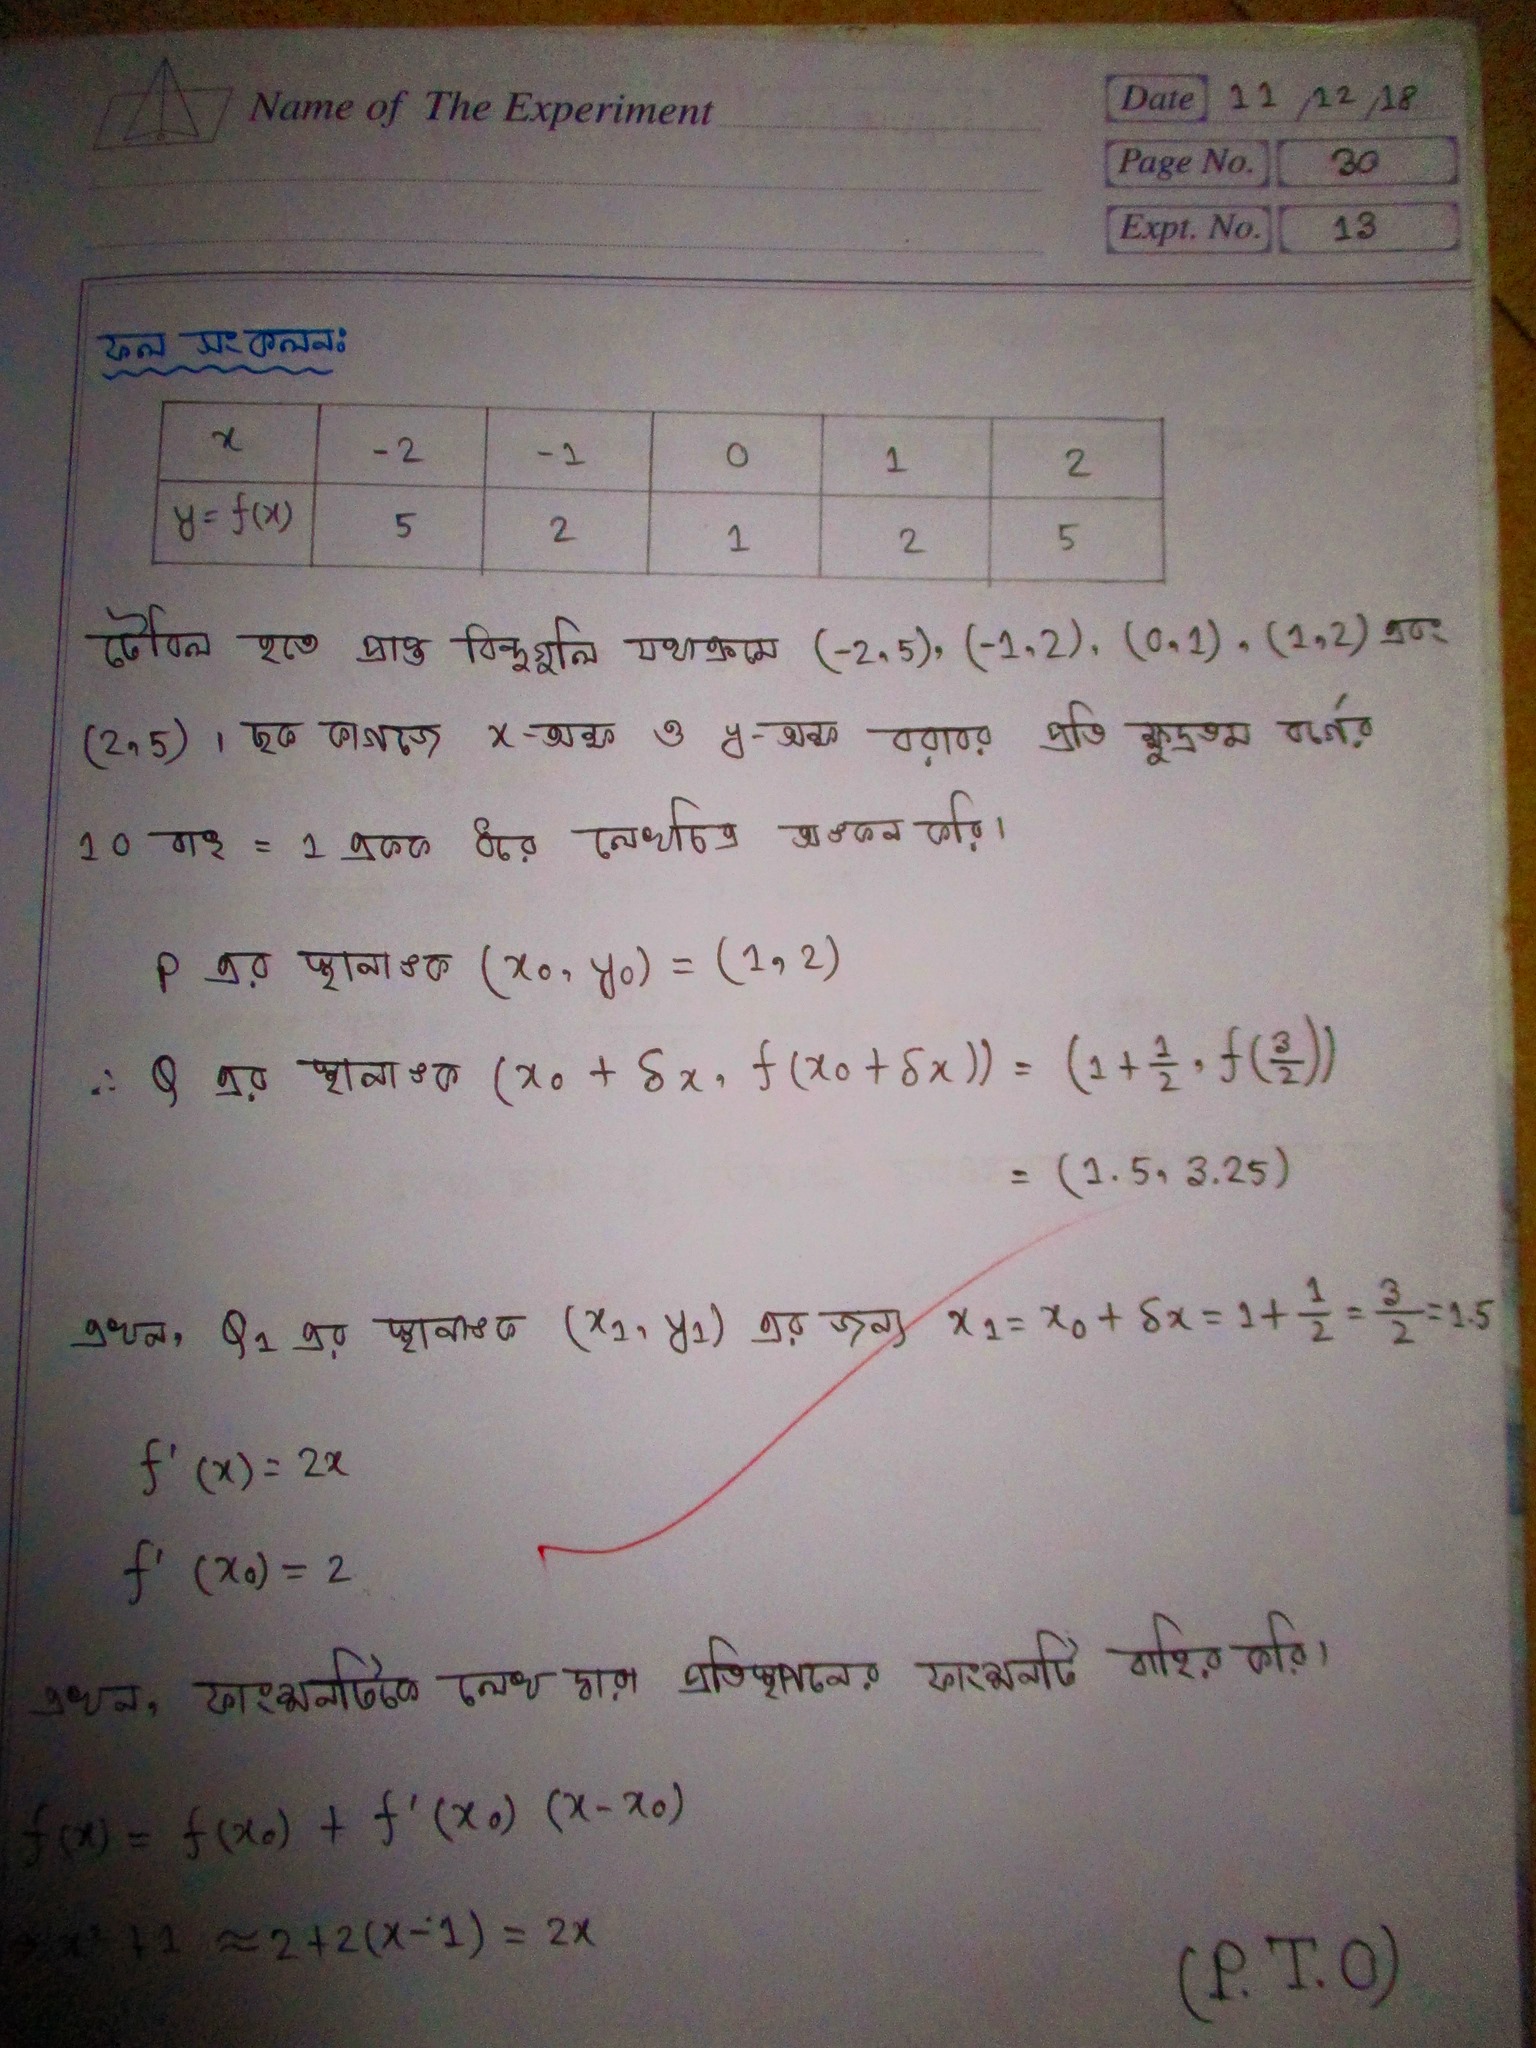 Name of The Experiment
Date 11/12/18
Page No. 30
Expt. No. 13
ফল সংকলনঃ
x -2 -1 0 1 2
y = f(x) 5 2 1 2 5
টেবিল হতে প্রাপ্ত বিন্দুগুলি যথাক্রমে (-2,5), (-1,2), (0,1), (1,2) এবং
(2,5) । ছক কাগজে x-অক্ষ ও y-অক্ষ বরাবর প্রতি ক্ষুদ্রতম বর্গের
10 বাহু = 1 একক ধরে লেখচিত্র অঙকন করি।
P এর স্থানাঙক (x₀, y₀) = (1, 2)
∴ Q এর স্থানাঙক (x₀ + δx, f(x₀ + δx)) = (1 + 1/2, f(3/2))
= (1.5, 3.25)
এখন, Q₁ এর স্থানাঙক (x₁, y₁) এর জন্য x₁ = x₀ + δx = 1 + 1/2 = 3/2 = 1.5
f'(x) = 2x
f'(x₀) = 2
এখন, ফাংশনটিকে লেখ দ্বারা প্রতিস্থাপনের ফাংশনটি বাহির করি।
f(x) = f(x₀) + f'(x₀) (x - x₀)
x² + 1 ≈ 2 + 2(x - 1) = 2x
(P.T.O)